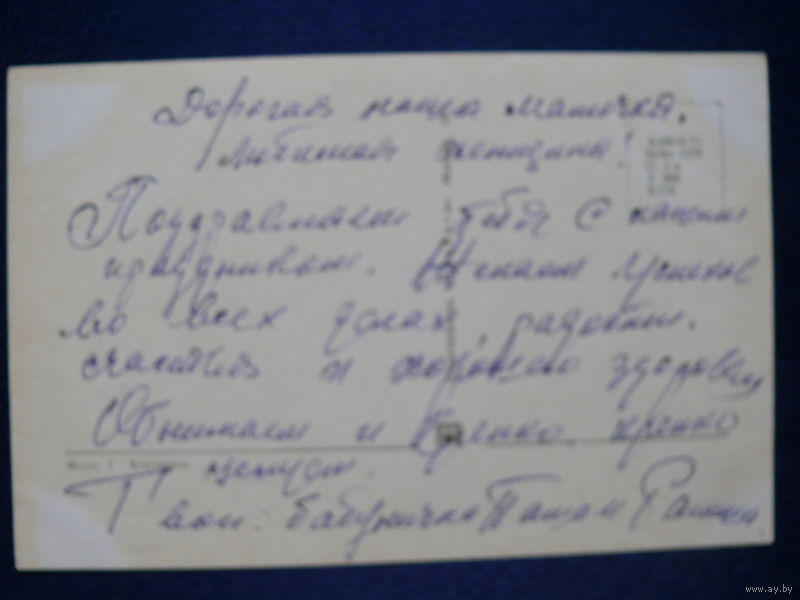 Дорогая наша Мамочка,
Любимая женщина!
Поздравляем тебя с нашим
праздником. Желаем успехов
во всех делах, радости,
счастья и хорошего здоровья
Обнимаем и крепко, крепко
целуем.
Твои: бабуничка Паша и
www.ay.by